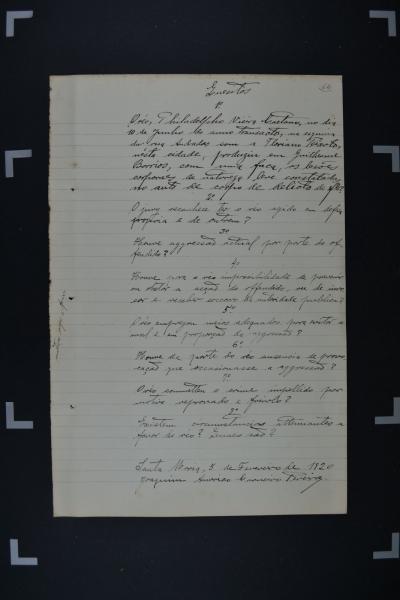 Quesitos
1º
O réo, Philadelpho Vieira Caetano, no dia
10 de Junho do anno transacto, na esquina
da rua Andradas com a Floriano Peixoto,
nésta cidade, produziu em Guilherme
Barros, com uma faca, as lesões
corporaes de natureza leve constatadas
no auto de corpo de delicto de fls?
2º
O jury reconhece ter o réo agido em defeza
propria e de outrem?
3º
Houve aggressão actual por parte do of-
fendido?
4º
Houve para o réo impossibilidade de prevenir
ou obstar a acção do offendido, ou de invo-
car e receber soccorro da autoridade publica?
5º
O réo empregou meios adequados para evitar o
mal e em proporção da aggressão?
6º
Houve da parte do réo ausencia de provo-
cação que occasionasse a aggressão?
7º
O réo commetteu o crime impellido por
motivo reprovado e frivolo?
8º
Existem circumstancias attenuantes a
favor do réo? Quaes são?
Santa Maria, 3 de Fevereiro de 1920
Joaquim